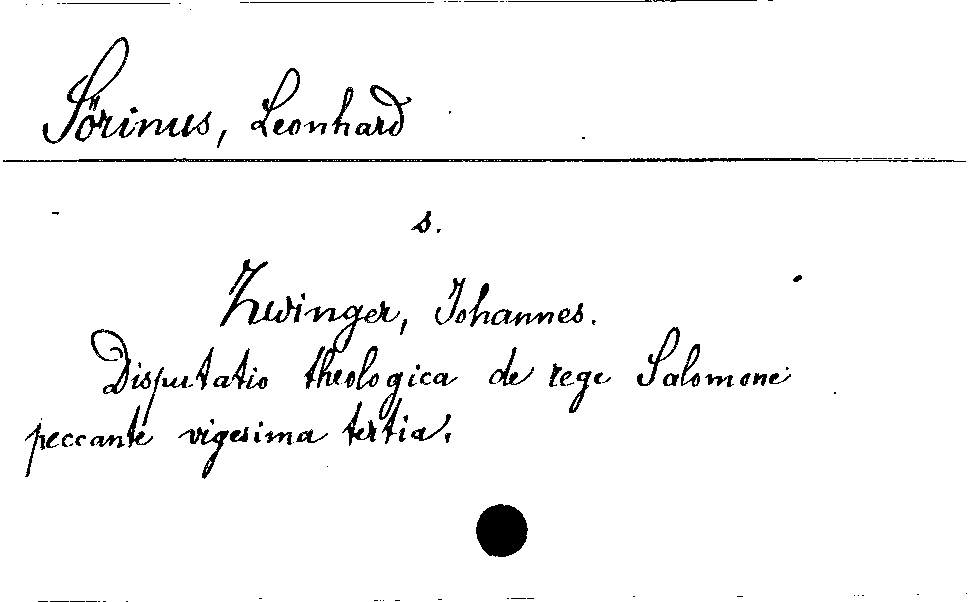 Sörinus, Leonhard
s.
Zwinger, Johannes.
Disputatio theologica de rege Salomone
peccante vigesima tertia.